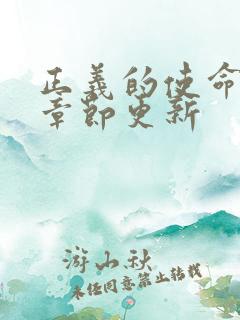 正義的使命
章節更新
游山秋
未经同意禁止转载